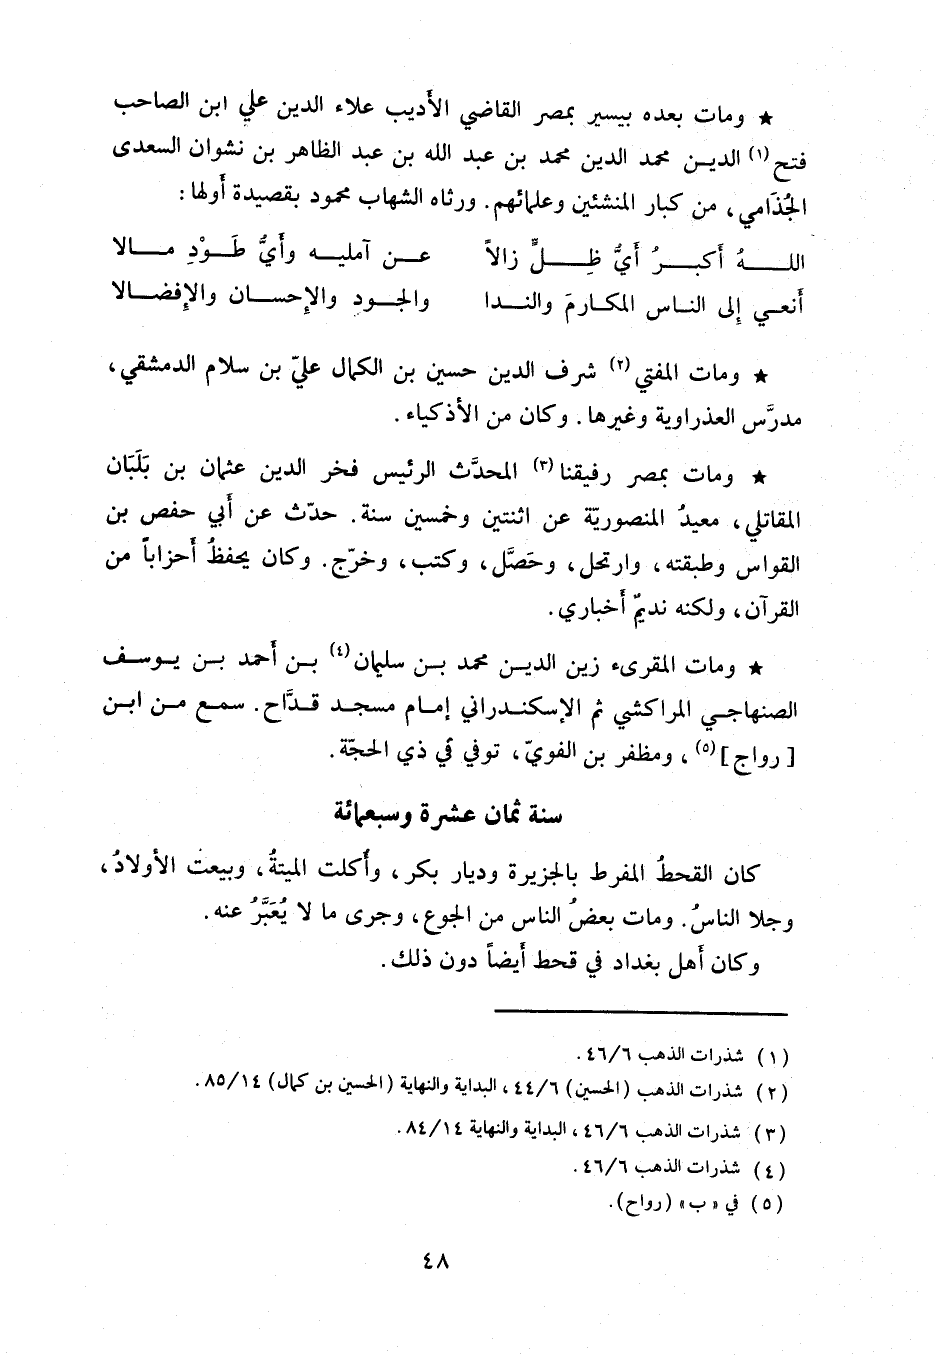 ★ ومات بعده بيسير بمصر القاضي الأديب علاء الدين علي ابن الصاحب
فتح(١) الديـن محمد الدين محمد بن عبد الله بن عبد الظاهر بن نشوان السعدى
الجُذَامي، من كبار المنشئين وعلمائهم. ورثاه الشهاب محمود بقصيدة أولها:
اللـــهُ أكبـــرُ أيُّ ظِـــلٍّ زالاً عـــن آمليـــه وأيُّ طَـــوْدِ مـــالا
أنعـي إلى النـاس المكـارمَ والنـدا والجـودِ والإحسـان والإفضـالا
★ ومات المفتي(٢) شرف الدين حسين بن الكمال عليّ بن سلام الدمشقي،
مدرَّس العذراوية وغيرها. وكان من الأذكياء.
★ ومات بمصر رفيقنا(٣) المحدَّث الرئيس فخر الدين عثمان بن بَلَبَان
المقاتلي، معيدُ المنصوريّة عن اثنتين وخمسين سنة. حدّث عن أبي حفص بن
القواس وطبقته، وارتحل، وحَصَّل، وكتب، وخرّج. وكان يحفظُ أحزاباً من
القرآن، ولكنه نديمٌ أخباري.
★ ومات المقرىء زين الديـن محمد بـن سليمان(٤) بـن أحمد بـن يـوسـف
الصنهاجـي المراكشي ثم الإسكنـدراني إمـام مسجـد قـدَّاح. سمـع مـن ابـن
[رواج](٥)، ومظفر بن الفويّ، توفي في ذي الحجّة.
سنة ثمان عشرة وسبعمائة
كان القحطُ المفرط بالجزيرة وديار بكر، وأُكلت الميتةُ، وبيعت الأولادُ،
وجلا الناسُ. ومات بعضُ الناس من الجوع، وجرى ما لا يُعَبَّرُ عنه.
وكان أهل بغداد في قحط أيضاً دون ذلك.
(١) شذرات الذهب ٤٦/٦.
(٢) شذرات الذهب (الحسين) ٤٤/٦، البداية والنهاية (الحسين بن كمال) ٨٥/١٤.
(٣) شذرات الذهب ٤٦/٦، البداية والنهاية ٨٤/١٤.
(٤) شذرات الذهب ٤٦/٦.
(٥) في «ب» (رواح).
٤٨